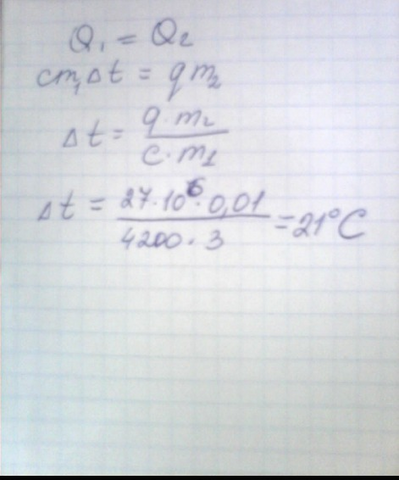 Q₁ = Q₂
cm₁Δt = qm₂
Δt = q·m₂ / c·m₁
Δt = 27·10⁶·0,01 / 4200·3 = 21°C